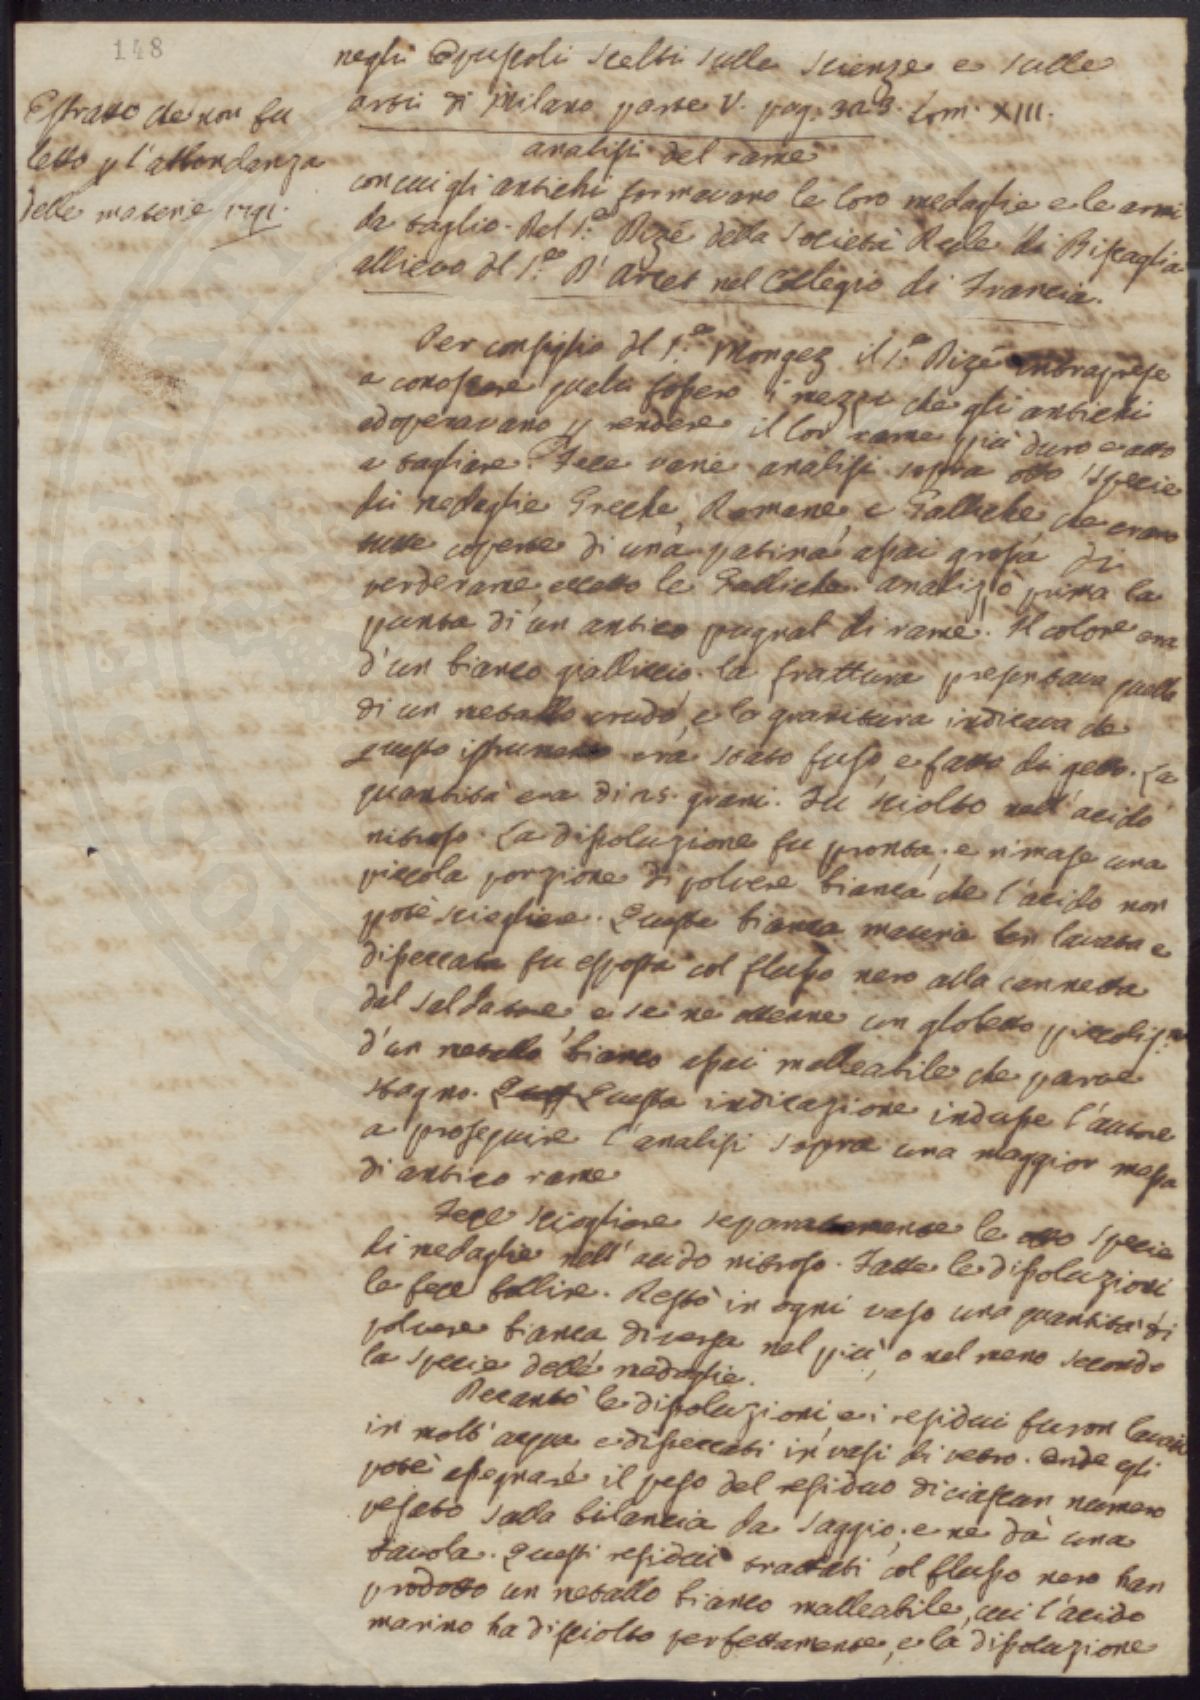 148
negli Opuscoli scelti sulle scienze e sulle
arti di Milano parte V. pag. 323. tom. XIII.
Estratto che non fu
letto p l'abbondanza
delle materie 1791.
analisi del rame
con cui gli antichi formavano le loro medaglie e le armi
da taglio. Del S.r Dizé della Società Reale di Biscaglia
allievo del S.r D'Arcet nel Collegio di Francia.
Per consiglio del S.r Mongez il S.r Dizé intraprese
a conoscere quali fossero i mezzi che gli antichi
adoperavano p rendere il lor rame più duro e atto
a tagliare. Fece varie analisi sopra otto specie
di medaglie Greche, Romane, e Galliche, che erano
tutte coperte di una patina assai grossa di
verderame eccetto le Galliche. analizzò prima la
punta di un antico pugnal di rame. Il colore era
d'un bianco gialliccio. la frattura presentava quella
di un metallo crudo, e la granitura indicava che
questo istrumento era stato fuso, e fatto di getto. La
quantità era di 25. grani. Fu sciolto nell'acido
nitroso. La dissoluzione fu pronta; e rimase una
piccola porzione di polvere bianca, che l'acido non
potè sciegliere. Questa bianca materia ben lavata e
disseccata fu esposta col flusso nero alla cannetta
del saldatore e se ne ottenne un globetto piccoliss.mo
d'un metallo bianco assai malleabile che parve
stagno. Quest Questa indicazione indusse l'autore
a proseguire l'analisi sopra una maggior massa
di antico rame
Fece sciogliere separatamente le otto specie
di medaglie nell'acido nitroso. Fatte le dissoluzioni
le fece bollire. Restò in ogni vaso una quantità di
polvere bianca diversa nel più, o nel meno secondo
la specie delle medaglie.
Decantò le dissoluzioni, e i residui furon lavati
in molt'acqua e disseccati in vasi di vetro. onde egli
potè assegnare il peso del residuo di ciascun numero
pesato sulla bilancia da saggio; e ne dà una
tavola. Questi residui trattati col flusso nero han
prodotto un metallo bianco malleabile, cui l'acido
marino ha disciolto perfettamente, e la dissoluzione